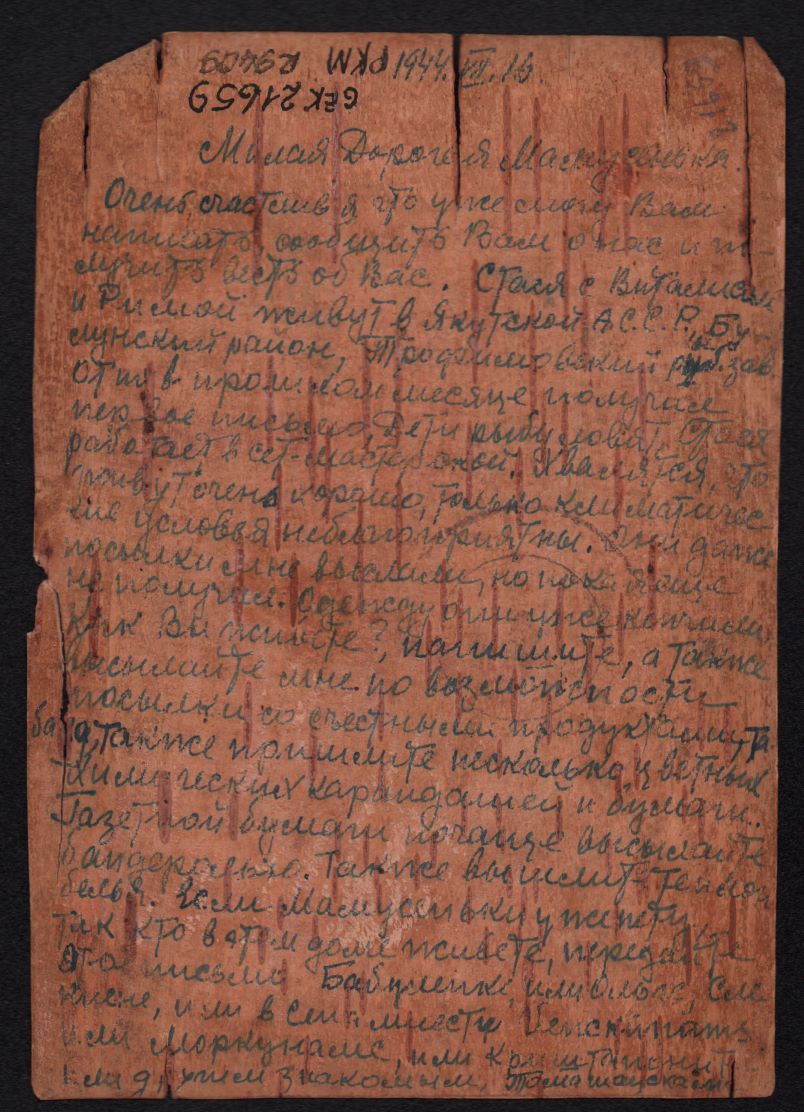 РКМ R9409
GEK 21659
1944. VII. 16.
Милая Дорогая Мамусенька.
Очень счастлив я что уже смогу Вам
написать сообщить Вам о нас и по-
лучить весть об Вас. Стася с Виталисом
и Римой живут в Якутской А.С.С.Р., Бу-
лунский район, Трофимовский рыбзав
от них в прошлом месяце получил
первое письмо, Дети рыбу ловят, Стася
работает в сет-мастерской. Хвалятся, что
живут очень хорошо, только климатичес
кие условья неблагоприятны. Они даже
посылки мне выслали, но пока еще
не получил. Одежду они уже
Как Вы живете?, напишите, а также
высылайте мне по возможности
посылки со съестными продуктами, та
бака, также пришлите несколько цветных
химических карандашей и бумаги.
Газетной бумаги почаще высылайте
бандеролью. Также вышлите теплой
белья. Если Мамусеньки уже нету,
так кто в этом доме живете, передайте
это письмо Бабуленке, или Ольге,
или в
или Моркунаме, или
или другим знакомым,